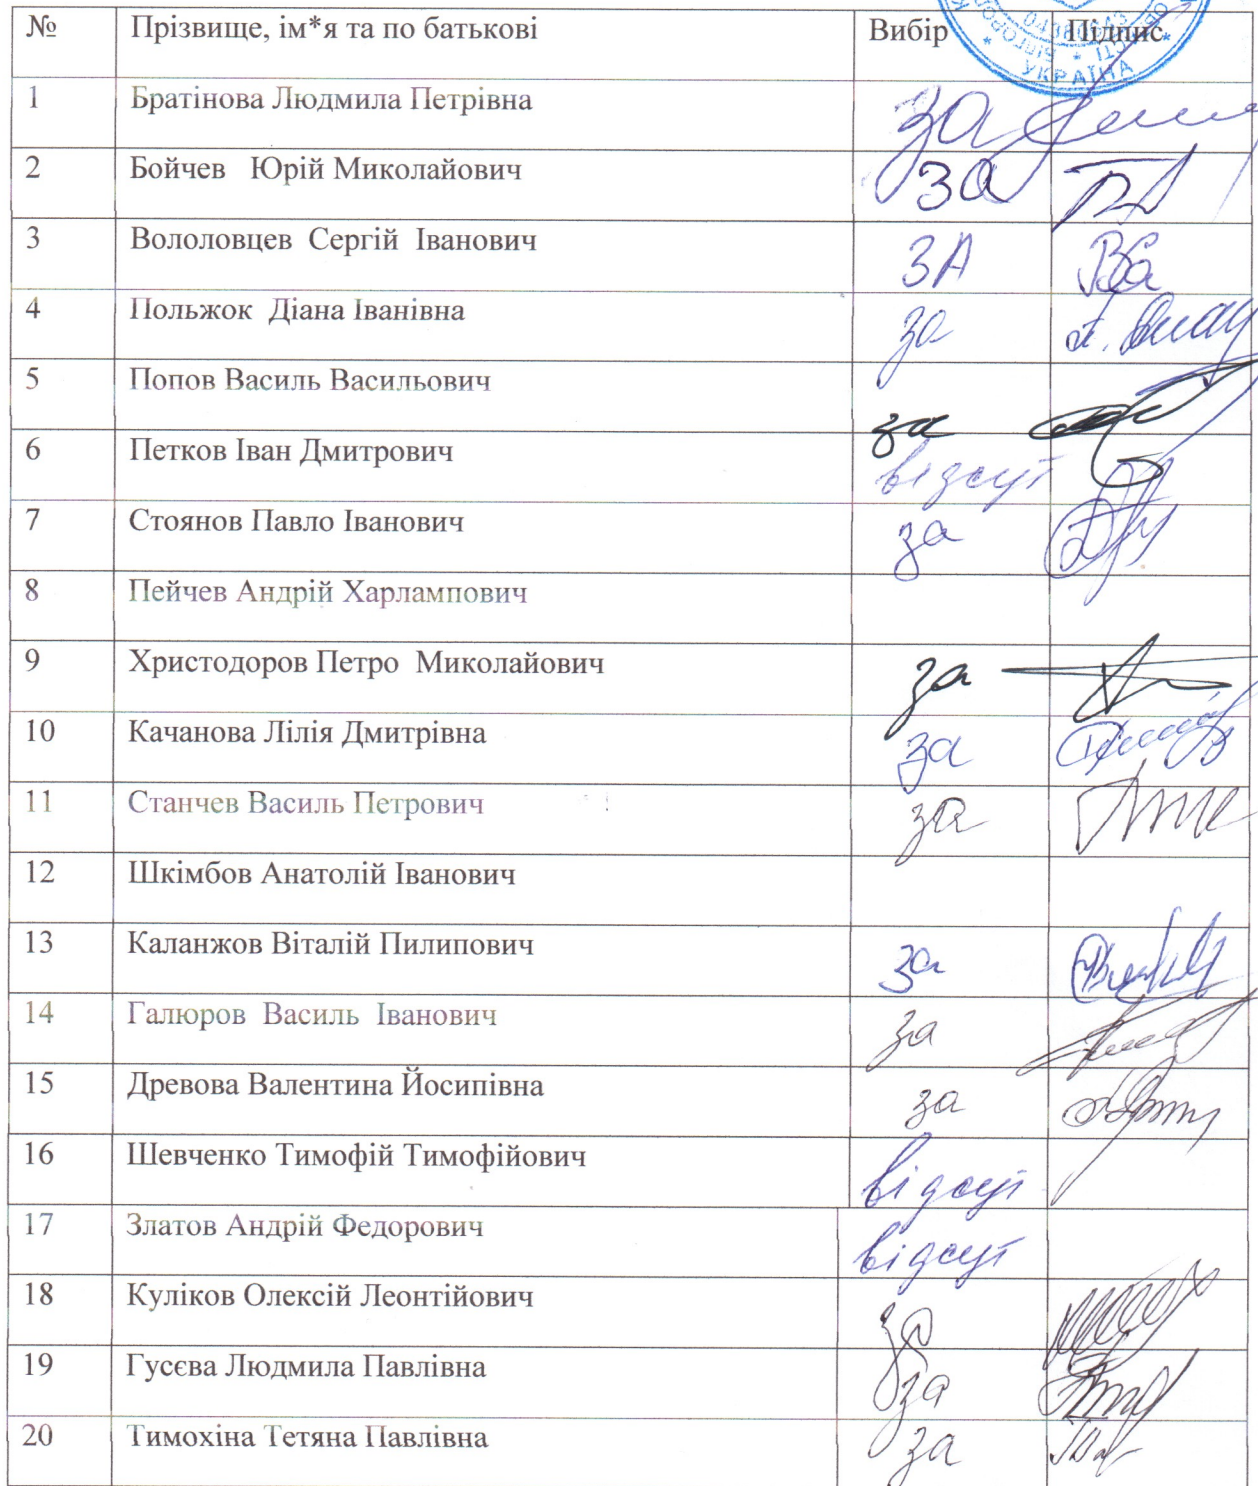 № Прізвище, ім*я та по батькові Вибір Підпис
УКРАЇНА
1 Братінова Людмила Петрівна за
2 Бойчев Юрій Миколайович за
3 Вололовцев Сергій Іванович ЗА
4 Польжок Діана Іванівна за
5 Попов Василь Васильович за
6 Петков Іван Дмитрович відсут
7 Стоянов Павло Іванович за
8 Пейчев Андрій Харлампович
9 Христодоров Петро Миколайович за
10 Качанова Лілія Дмитрівна за
11 Станчев Василь Петрович за
12 Шкімбов Анатолій Іванович
13 Каланжов Віталій Пилипович за
14 Галюров Василь Іванович за
15 Древова Валентина Йосипівна за
16 Шевченко Тимофій Тимофійович відсут
17 Златов Андрій Федорович відсут
18 Куліков Олексій Леонтійович за
19 Гусєва Людмила Павлівна за
20 Тимохіна Тетяна Павлівна за